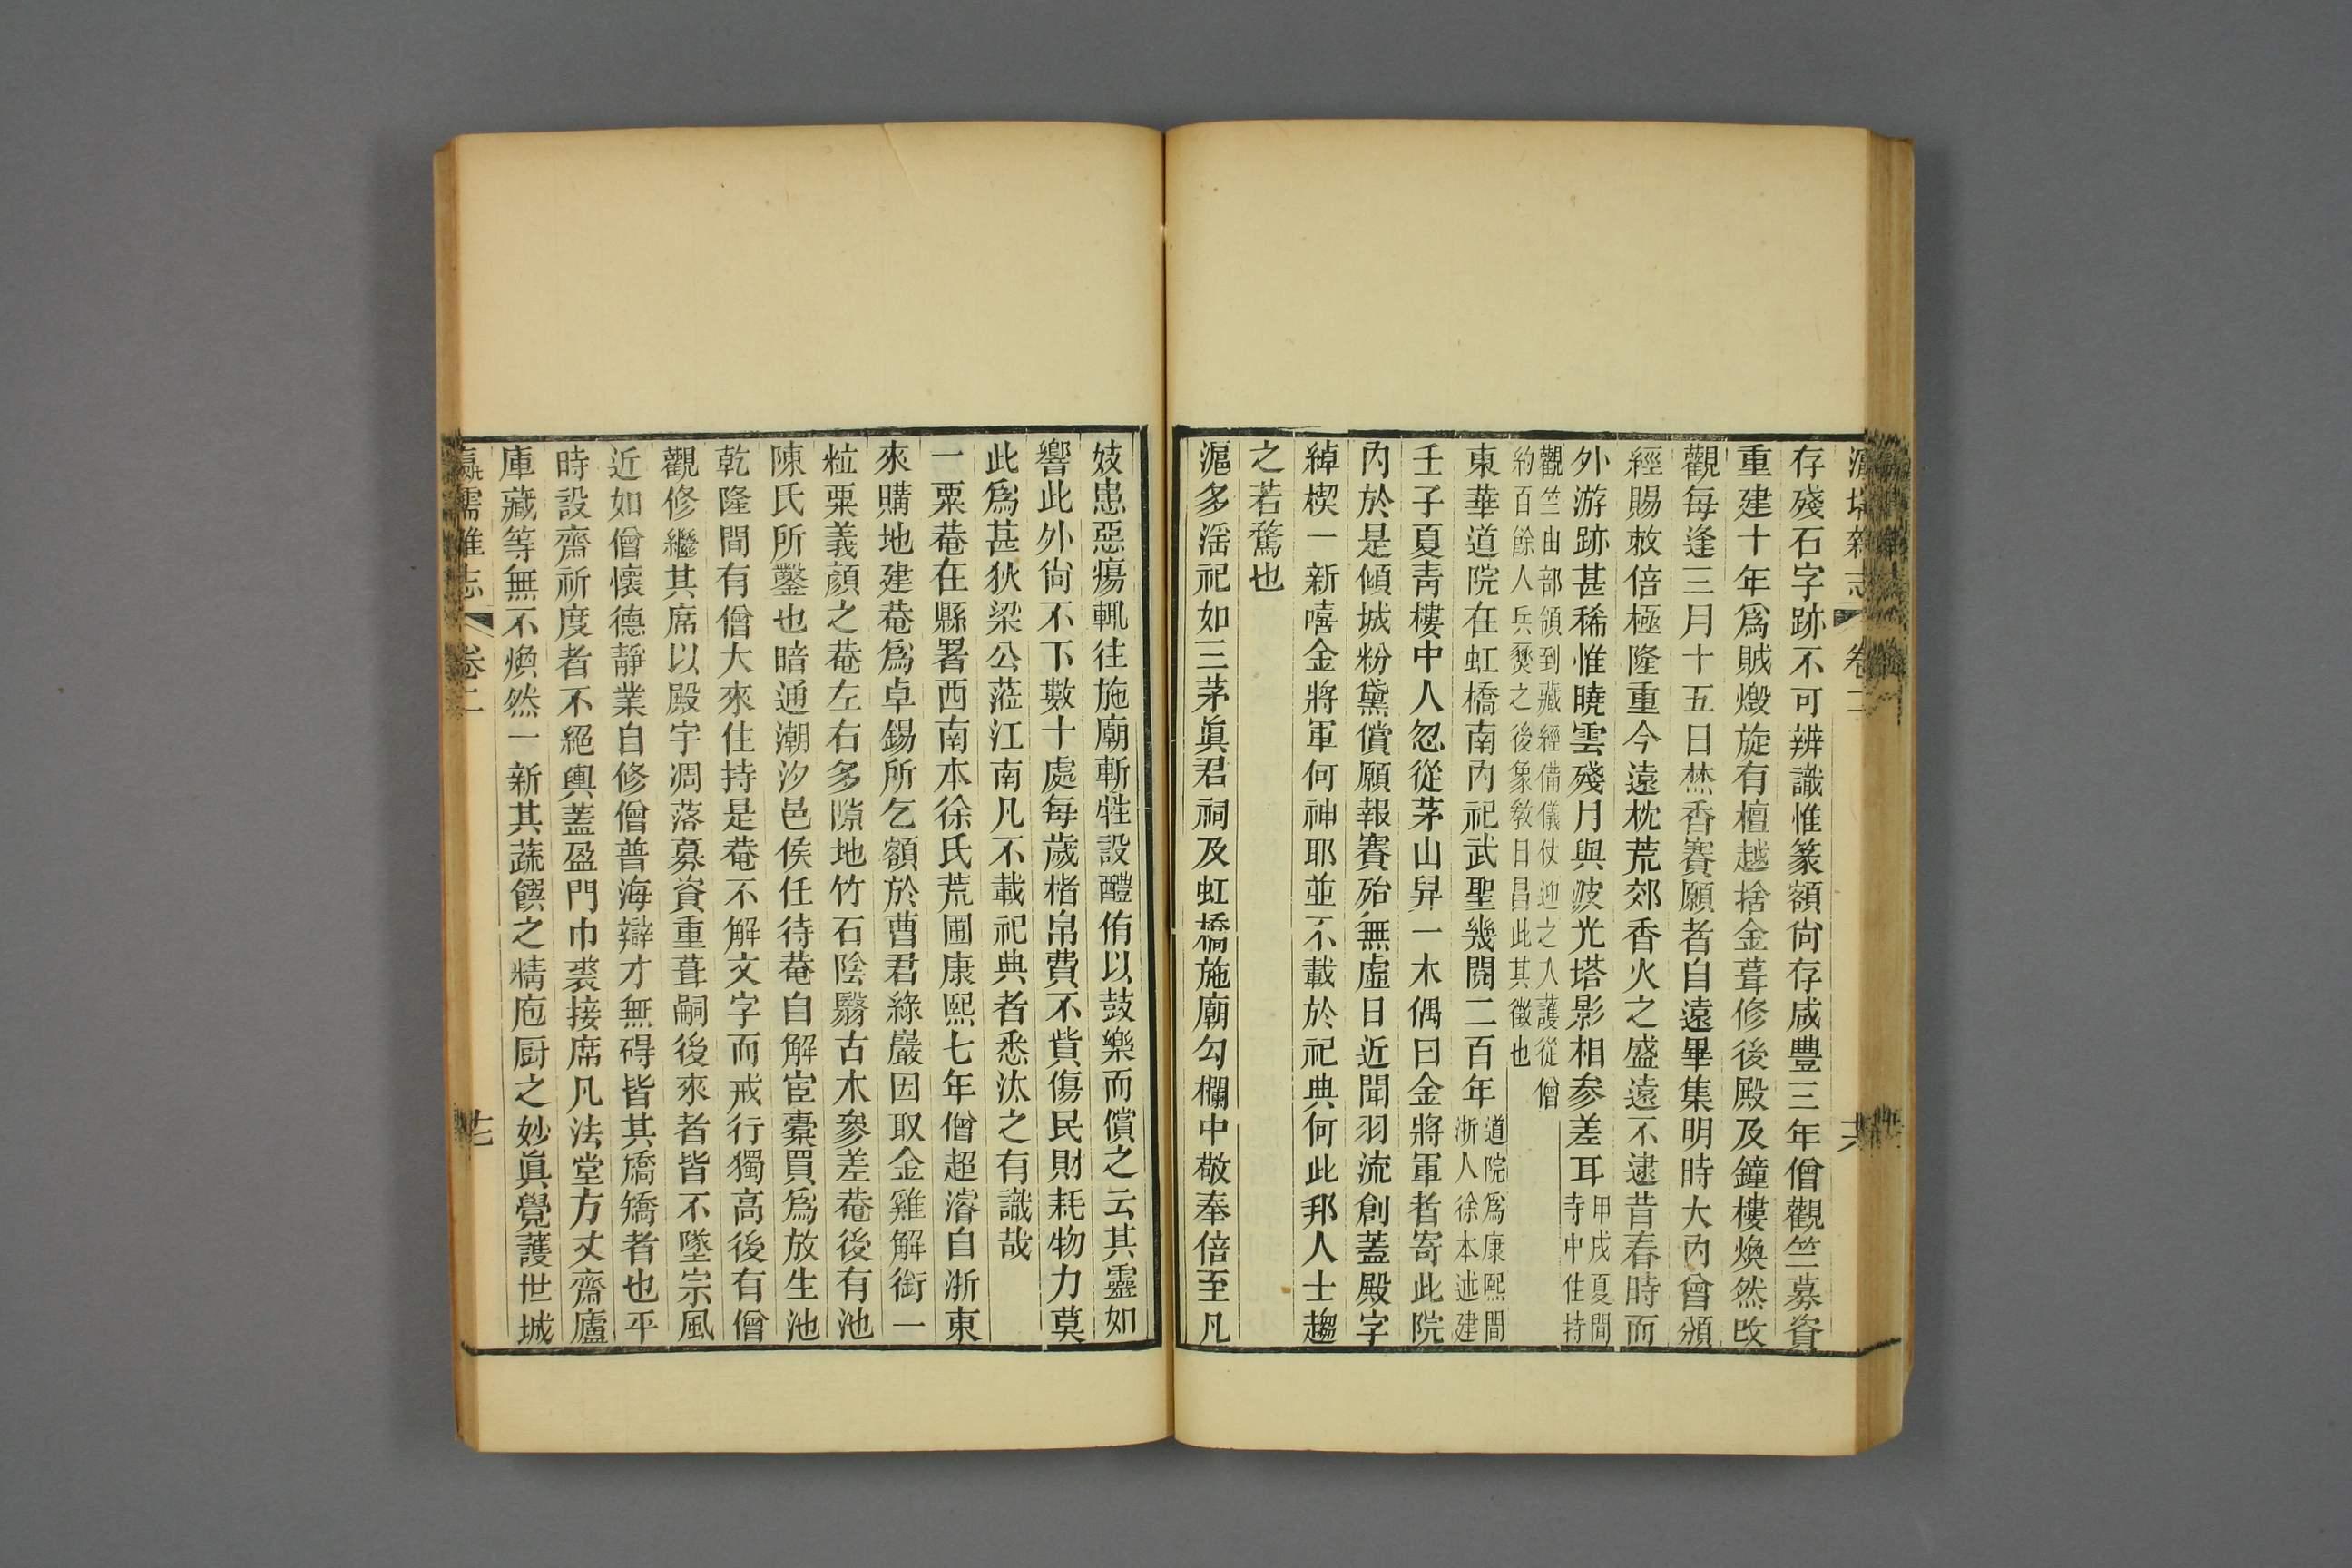 存殘石字跡不可辨識惟篆額尙存咸豐三年僧觀竺募資
重建十年爲賊燬旋有檀越捨金葺修後殿及鐘樓煥然改
觀每逢三月十五日焚香賽願者自遠畢集明時大內曾頒
經賜敕倍極隆重今遠枕荒郊香火之盛遠不逮昔春時而
外游跡甚稀惟曉雲殘月與波光塔影相參差耳甲戌夏間
寺中住持
觀竺由部領到藏經備儀仗迎之入護從僧
約百餘人兵燹之後象教日昌此其徵也
東華道院在虹橋南內祀武聖幾閱二百年道院爲康熙間
浙人徐本述建
壬子夏靑樓中人忽從茅山舁一木偶曰金將軍者寄此院
內於是傾城粉黛償願報賽殆無虛日近聞羽流創蓋殿宇
綽楔一新嘻金將軍何神耶並不載於祀典何此邦人士趨
之若鶩也
滬多淫祀如三茅眞君祠及虹橋施廟勾欄中敬奉倍至凡
妓患惡瘍輒往施廟斬牲設醴侑以鼓樂而償之云其靈如
響此外尙不下數十處每歲楮帛費不貲傷民財耗物力莫
此爲甚狄梁公蒞江南凡不載祀典者悉汰之有識哉
一粟菴在縣署西南本徐氏荒圃康熙七年僧超濬自浙東
來購地建菴爲卓錫所乞額於曹君綠巖因取金雞解銜一
粒粟義顔之菴左右多隙地竹石陰翳古木參差菴後有池
陳氏所鑿也暗通潮汐邑侯任待菴自解宦橐買爲放生池
乾隆間有僧大來住持是菴不解文字而戒行獨高後有僧
觀修繼其席以殿宇凋落募資重葺嗣後來者皆不墜宗風
近如僧懷德靜業自修僧普海辯才無碍皆其矯矯者也平
時設齋祈度者不絕輿蓋盈門巾裘接席凡法堂方丈齋廬
庫藏等無不煥然一新其蔬饌之精庖厨之妙眞覺護世城
卷二